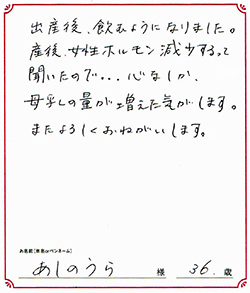 出産後、飲むようになりました。
産後、女性ホルモン減少するって
聞いたので・・・心なしか、
母乳の量が増えた気がします。
またよろしくおねがいします。
お名前【本名orペンネーム】
あしのうら 様 36. 歳